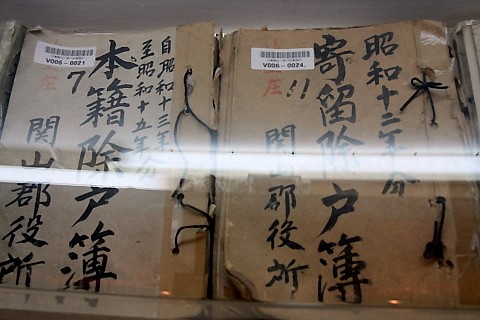 V006-0021
自昭和十三年分
至昭和十五年分
本籍除戸簿
7
関山郡役所
V006-0024
昭和十二年分
寄留除戸簿
11
関山郡役所